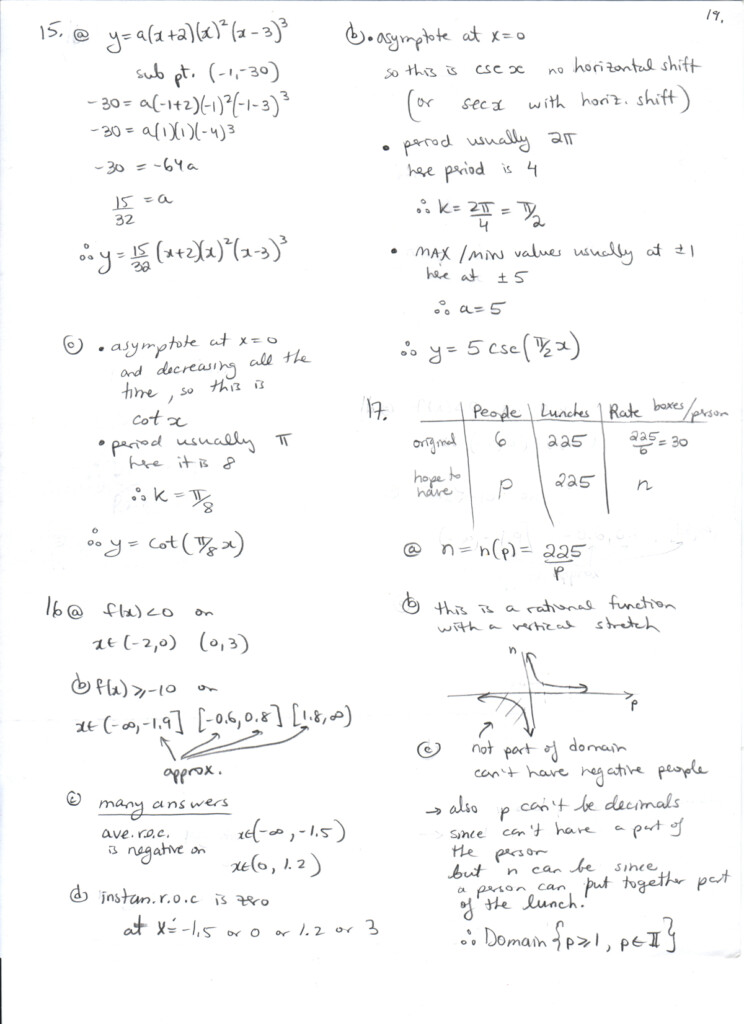 19.
15. (a) y = a(x+2)(x)²(x-3)³
sub pt. (-1,-30)
-30 = a(-1+2)(-1)²(-1-3)³
-30 = a(1)(1)(-4)³
-30 = -64a
15/32 = a
∴ y = 15/32 (x+2)(x)²(x-3)³
(b) • asymptote at x=0
so this is csc x no horizontal shift
(or sec x with horiz. shift)
• period usually 2π
here period is 4
∴ k = 2π/4 = π/2
• MAX/MIN values usually at ±1
here at ±5
∴ a = 5
∴ y = 5 csc(π/2 x)
(c) • asymptote at x=0
and decreasing all the
time, so this is
cot x
• period usually π
here it is 8
∴ k = π/8
∴ y = cot(π/8 x)
16 (a) f(x)<0 on
x∈(-2,0) (0,3)
(b) f(x)≥-10 on
x∈(-∞,-1.9] [-0.6,0.8] [1.8,∞)
approx.
(c) many answers
ave. r.o.c. x∈(-∞,-1.5)
is negative on x∈(0,1.2)
(d) instan. r.o.c is zero
at x≐-1.5 or 0 or 1.2 or 3
17. People Lunches Rate boxes/person
original 6 225 225/6 = 30
hope to have p 225 n
(a) n = n(p) = 225/p
(b) this is a rational function
with a vertical stretch
n
p
(c) not part of domain
can't have negative people
→ also p can't be decimals
since can't have a part of
the person
but n can be since
a person can put together part
of the lunch.
∴ Domain {p≥1, p∈I}